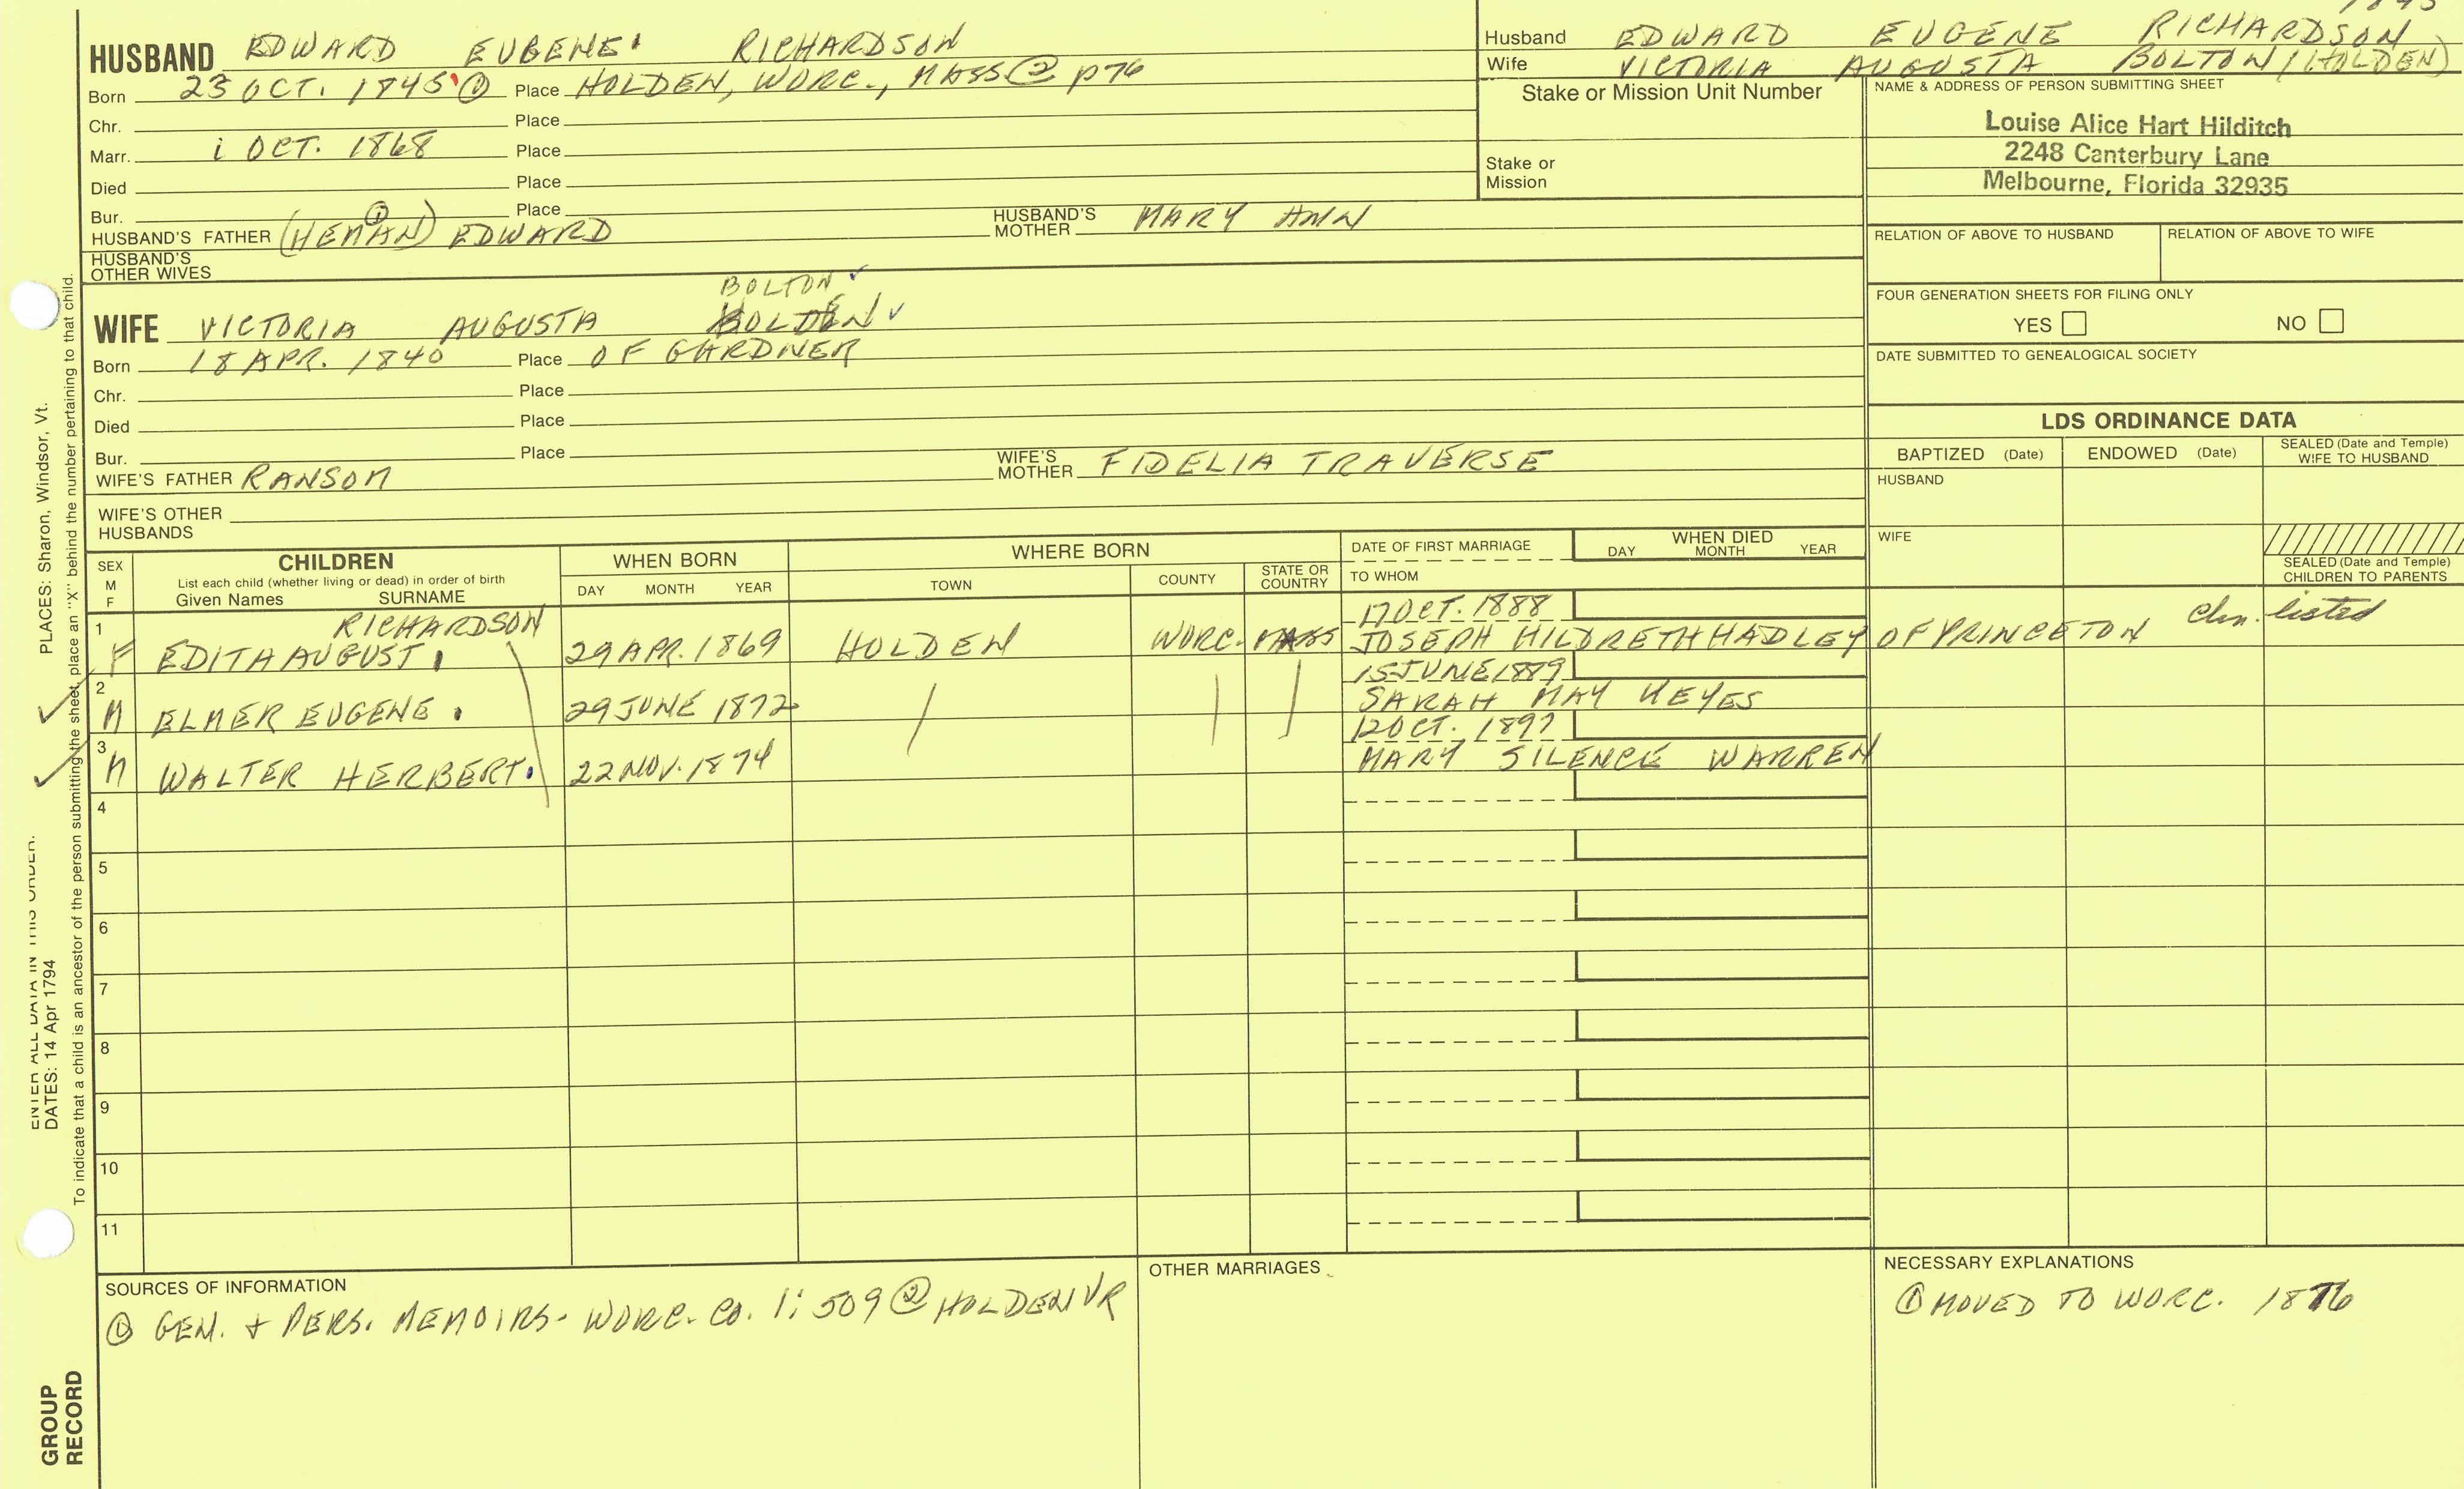 HUSBAND EDWARD EUGENE RICHARDSON
Born 23 OCT. 1845 ① Place HOLDEN, WORC., MASS ② p76
Chr. Place
Marr. 1 OCT. 1868 Place
Died Place
Bur. Place
HUSBAND'S FATHER (HEMAN) ① EDWARD HUSBAND'S MOTHER MARY ANN
HUSBAND'S OTHER WIVES
BOLTON ✓
WIFE VICTORIA AUGUSTA HOLDEN ✓
Born 18 APR. 1840 Place OF GARDNER
Chr. Place
Died Place
Bur. Place
WIFE'S FATHER RANSOM WIFE'S MOTHER FIDELIA TRAVERSE
WIFE'S OTHER HUSBANDS
1845
Husband EDWARD EUGENE RICHARDSON
Wife VICTORIA AUGUSTA BOLTON/(HOLDEN)
Stake or Mission Unit Number
Stake or Mission
NAME & ADDRESS OF PERSON SUBMITTING SHEET
Louise Alice Hart Hilditch
2248 Canterbury Lane
Melbourne, Florida 32935
RELATION OF ABOVE TO HUSBAND RELATION OF ABOVE TO WIFE
FOUR GENERATION SHEETS FOR FILING ONLY
YES NO
DATE SUBMITTED TO GENEALOGICAL SOCIETY
LDS ORDINANCE DATA
BAPTIZED (Date) ENDOWED (Date) SEALED (Date and Temple) WIFE TO HUSBAND
HUSBAND
WIFE
SEALED (Date and Temple) CHILDREN TO PARENTS
SEX M F CHILDREN WHEN BORN WHERE BORN DATE OF FIRST MARRIAGE WHEN DIED
List each child (whether living or dead) in order of birth
Given Names SURNAME DAY MONTH YEAR TOWN COUNTY STATE OR COUNTRY TO WHOM DAY MONTH YEAR
1 RICHARDSON 17 OCT. 1888 Chn. listed
F EDITH AUGUST 29 APR. 1869 HOLDEN WORC. MASS JOSEPH HILDRETH HADLEY OF PRINCETON
2 15 JUNE 1889
M ELMER EUGENE 29 JUNE 1872 SARAH MAY KEYES
3 12 OCT. 1897
M WALTER HERBERT 22 NOV. 1874 MARY SILENCE WARREN
4
5
6
7
8
9
10
11
SOURCES OF INFORMATION
① GEN. & PERS. MEMOIRS - WORC. CO. 1:509 ② HOLDEN VR
OTHER MARRIAGES
NECESSARY EXPLANATIONS
① MOVED TO WORC. 1876
ENTER ALL DATA IN THIS ORDER:
PLACES: Sharon, Windsor, Vt.
DATES: 14 Apr 1794
To indicate that a child is an ancestor of the person submitting the sheet, place an "X" behind the number pertaining to that child.
GROUP
RECORD